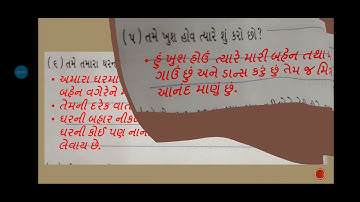 (૫) તમે ખુશ હોવ ત્યારે શું કરો છો?
• હું ખુશ હોઉં ત્યારે મારી બહેન તથા
ગાઉં છું અને ડાન્સ કરું છું તેમ જ
આનંદ માણું છું.
(૬) તમે તમારા ઘરના
• અમારા ઘરમાં
બહેન વગેરેને
• તેમની દરેક વાત
• ઘરની બહાર નીકળ
ઘરની કોઈ પણ નાની
લેવાય છે.